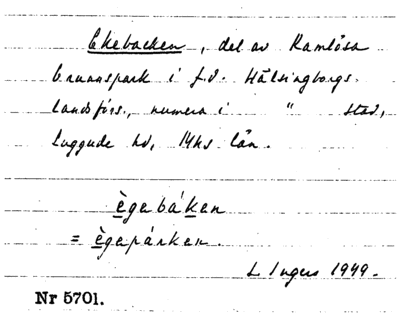 Ekebacken, del av Ramlösa
brunnspark i f.d. Hälsingborgs
landsförs., numera i " stad,
Luggude hd, Mhs län.
ègebáken
= ègepárken.
L Ingers 1949.
Nr 5701.